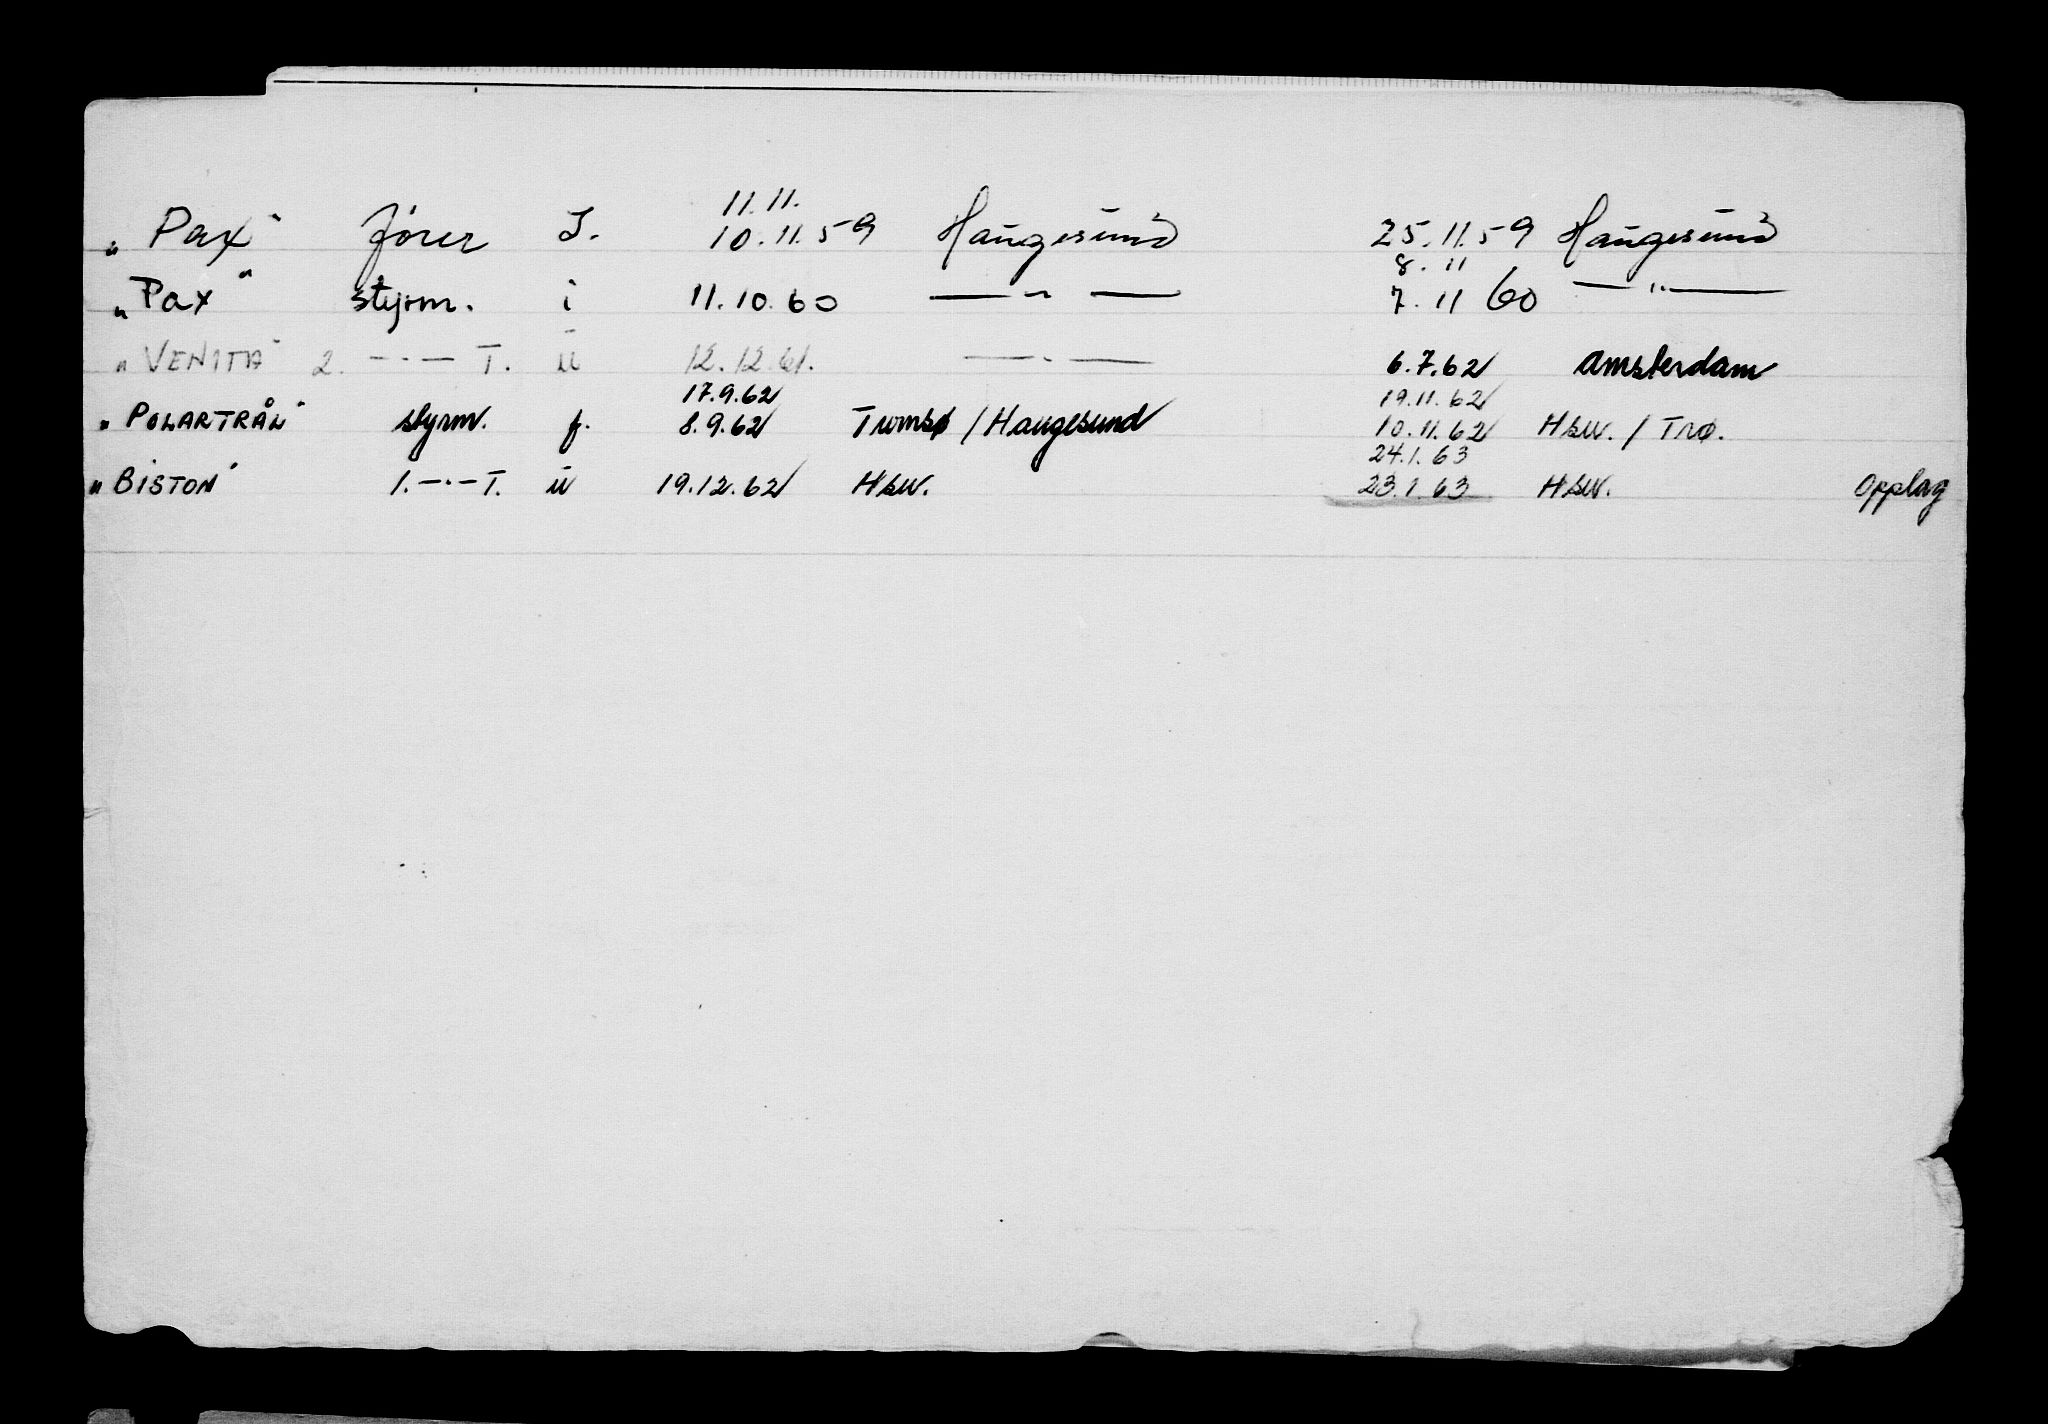 11.11.
„Pax" fører I. 10.11.59 Haugesund 25.11.59 Haugesund
8.11
„Pax" styrm. i 11.10.60 —"— 7.11 60 —"—
„VENITA" 2. —·— T. u 12.12.61. —·— 6.7.62 Amsterdam
17.9.62 19.11.62
„POLARTRÅL" styrm. f. 8.9.62 Tromsø / Haugesund 10.11.62 Hsu. / Trø.
24.1.63
„BISTON" 1. —·— T. u 19.12.62 Hsu. 23.1.63 Hsu. Opplag